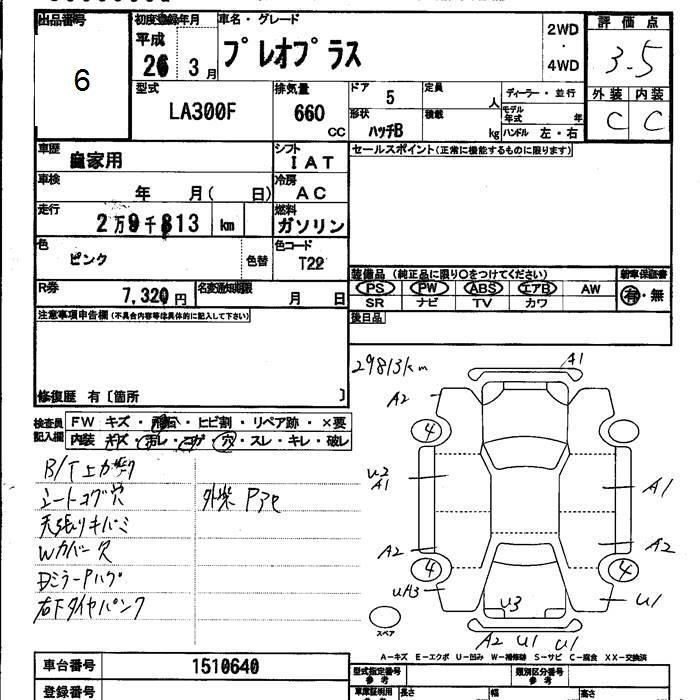 出品番号 初度登録年月 車名・グレード 評価点
6 平成 26年 3月 プレオプラス 2WD・4WD 3.5
型式 排気量 ドア 定員 ディーラー・並行 外装 内装
LA300F 660 CC 5 人 モデル年式 年 C C
形状 積載
ハッチB kg ハンドル 左・右
車歴 シフト セールスポイント(正常に機能するものに限ります)
自家用 IAT
車検 冷房
年 月( 日) AC
走行 燃料
2万9千813 km ガソリン
色 色コード
ピンク 色替 T22
装備品(純正品に限り○をつけてください) 新車保証書
R券 名変通知期限 PS PW ABS エアB AW 有・無
7,320円 月 日 SR ナビ TV カワ
注意事項申告欄(不具合内容等は具体的に記入して下さい) 後日品
29813km A1
A2
修復歴 有〔箇所 〕
検査員記入欄 FW キズ・飛石・ヒビ割・リペア跡・×要
内装 キズ・汚レ・コゲ・穴・スレ・キレ・破レ
4
B/T上カザリ
シートコゲ穴 外装 Pアセ U2 A1 A1
天張りキバミ
Wカバー欠 A2 A2
DミラーPハゲ 4 4
右下タイヤパンク UA3 U3 U1
スペア
A2 U1 U1
A−キズ E−エクボ U−凹み W−補修跡 S−サビ C−腐食 XX−交換済
車台番号 1510640 型式指定番号 参考 類別区分番号 参考
登録番号 車庫証明用 長さ 幅 高さ